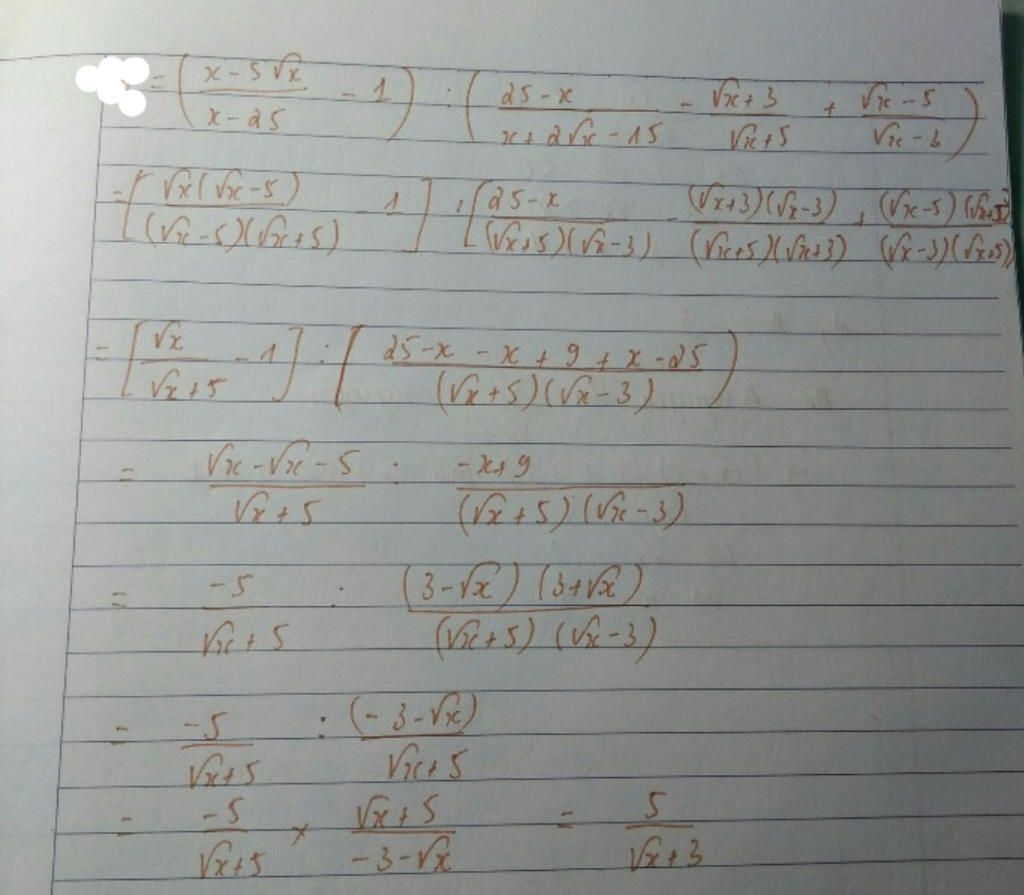 = ( (x - 5√x)/(x - 25) - 1 ) : ( (25 - x)/(x + 2√x - 15) - (√x + 3)/(√x + 5) + (√x - 5)/(√x - 3) )
= [ (√x(√x - 5))/((√x - 5)(√x + 5)) - 1 ] : [ (25 - x)/((√x + 5)(√x - 3)) - ((√x + 3)(√x - 3))/((√x + 5)(√x + 3)) + ((√x - 5)(√x + 5))/((√x - 3)(√x + 5)) ]
= [ √x/(√x + 5) - 1 ] : [ (25 - x - x + 9 + x - 25)/((√x + 5)(√x - 3)) )
= (√x - √x - 5)/(√x + 5) : (-x + 9)/((√x + 5)(√x - 3))
= -5/(√x + 5) : ((3 - √x)(3 + √x))/((√x + 5)(√x - 3))
= -5/(√x + 5) : (-3 - √x)/(√x + 5)
= -5/(√x + 5) × (√x + 5)/(-3 - √x) = 5/(√x + 3)